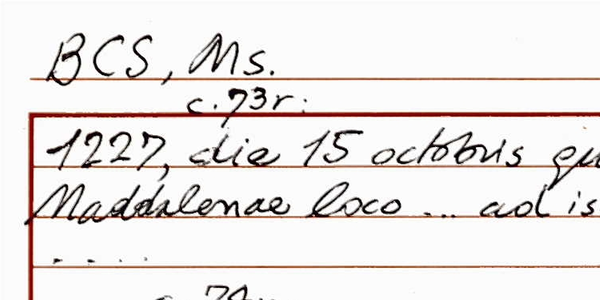 BCS, Ms.
c. 73r:
1227, die 15 octobris qu
Maddalenae loco ... ad is
. . . .